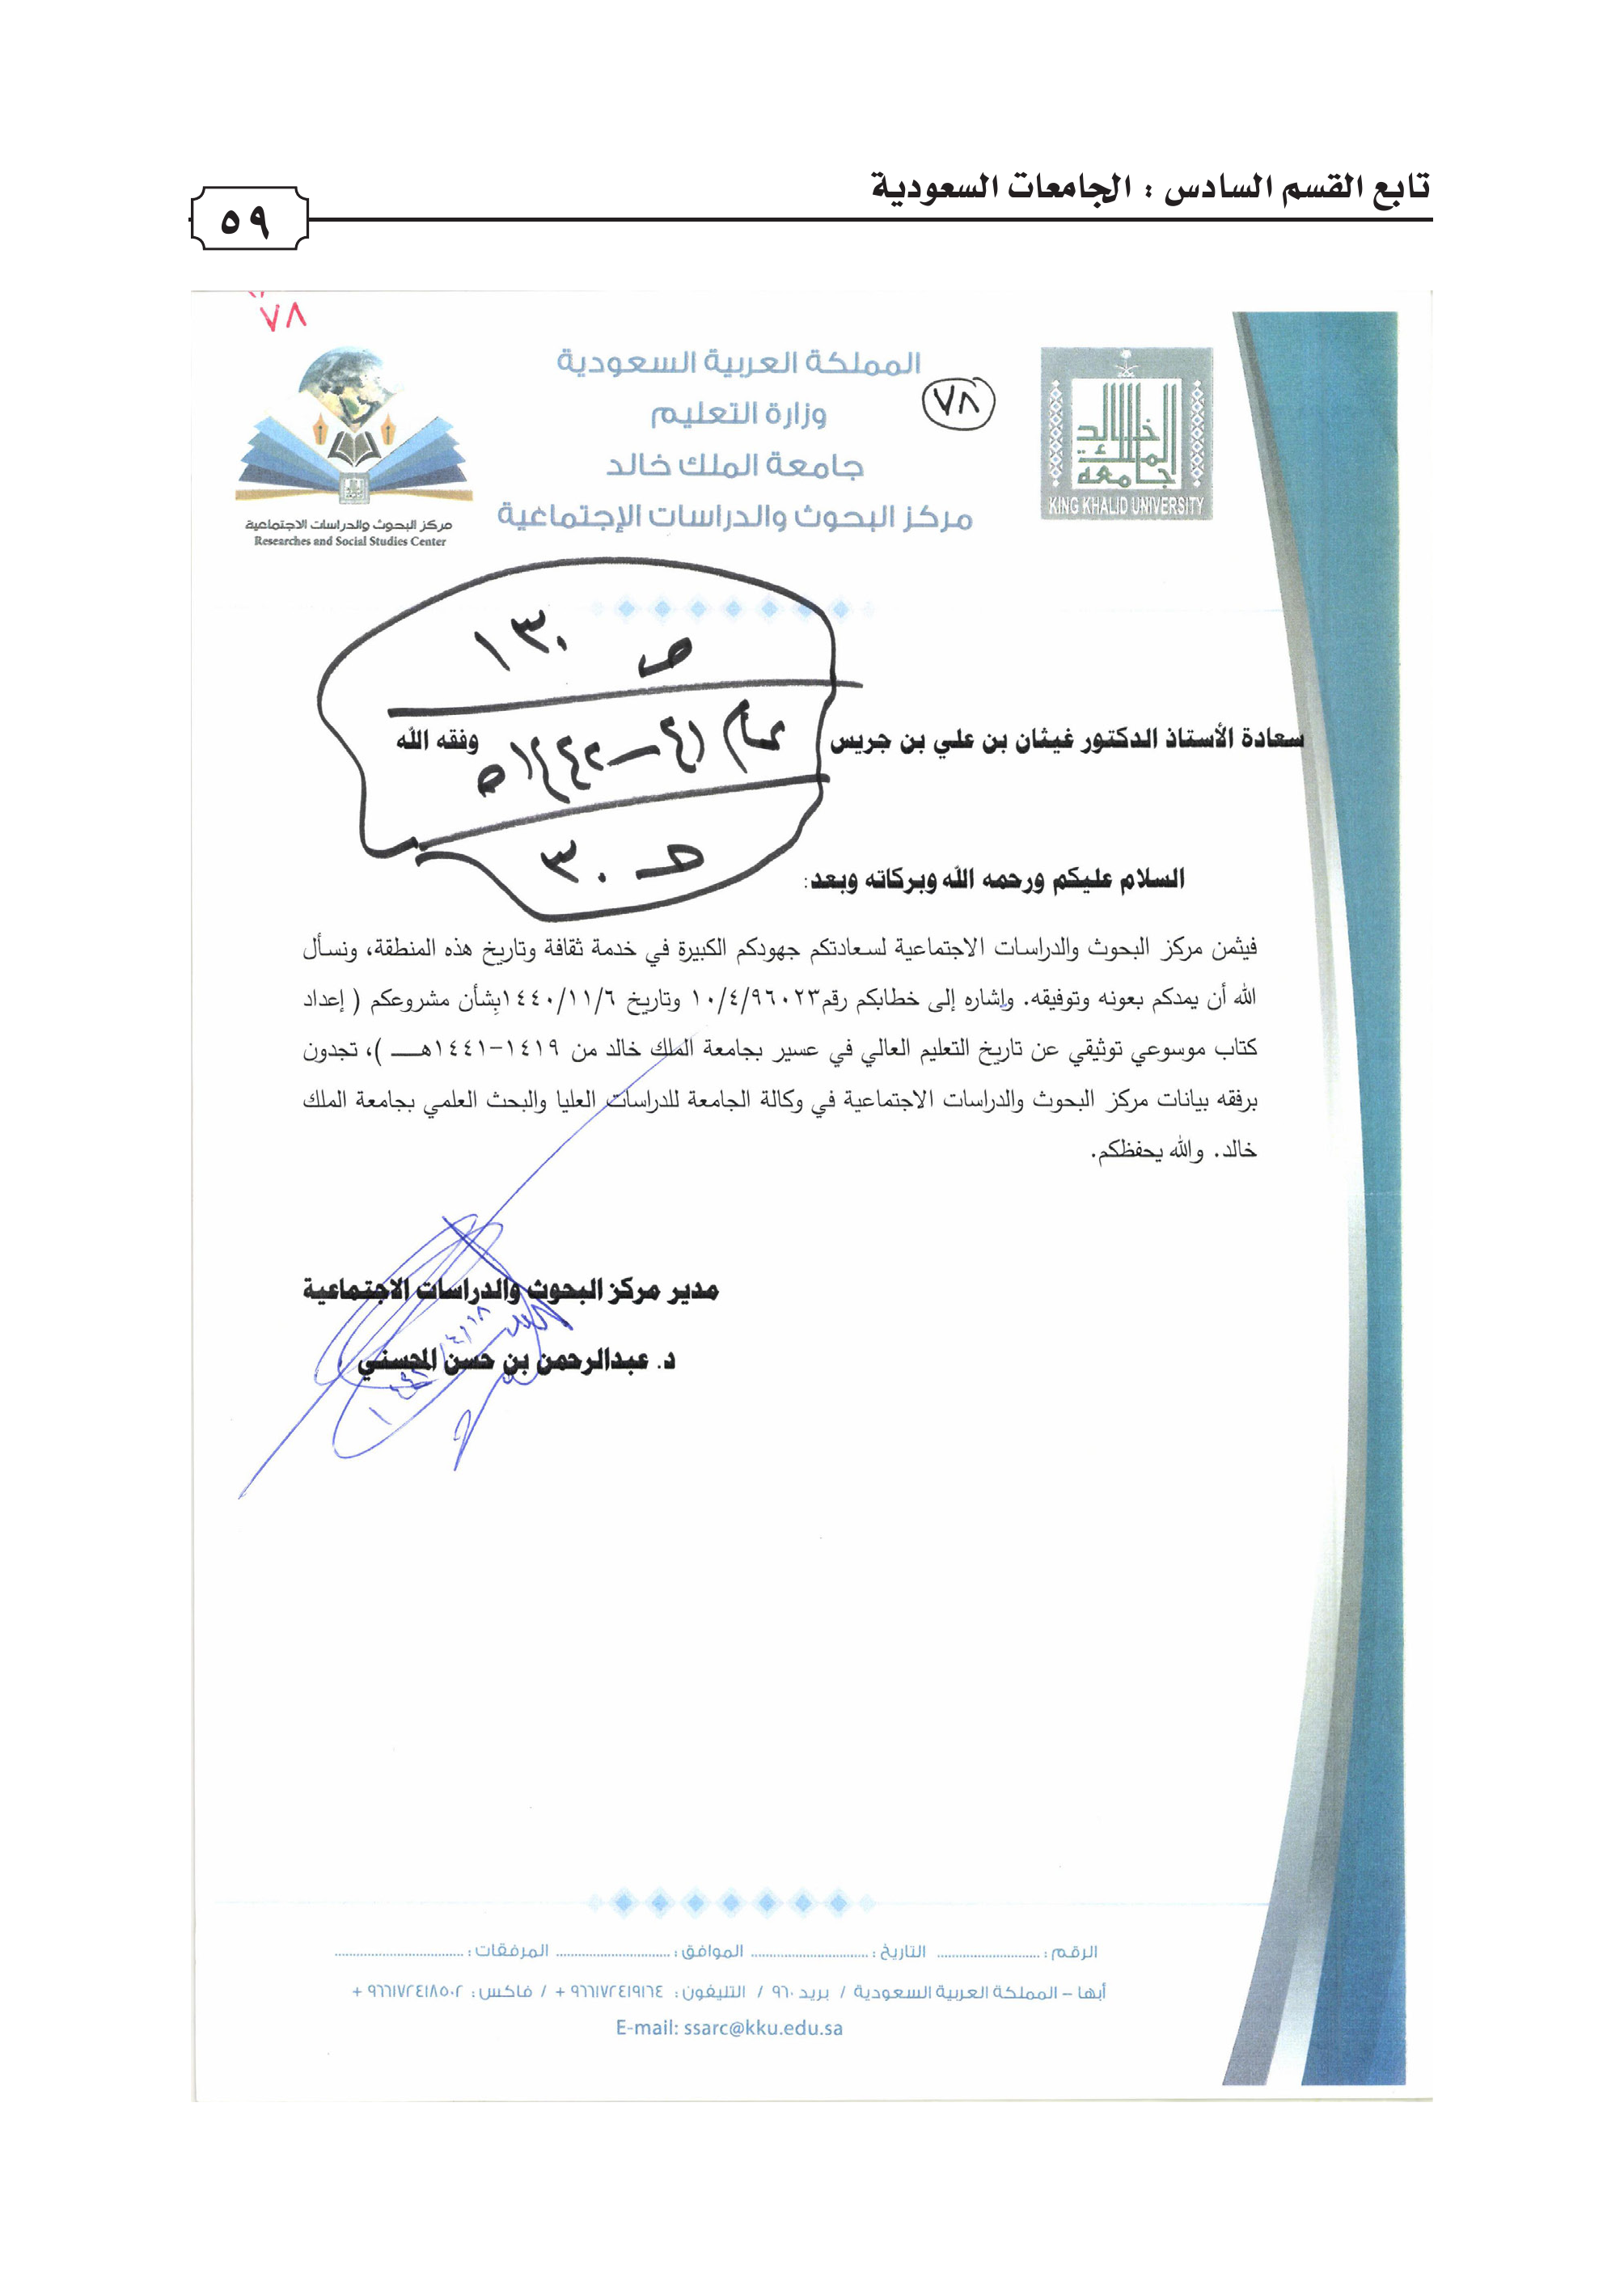 تابع القسم السادس : الجامعات السعودية
٥٩
٧٨
المملكة العربية السعودية
وزارة التعليم
جامعة الملك خالد
مركز البحوث والدراسات الإجتماعية
٧٨
خالد
الملك
جامعة
KING KHALID UNIVERSITY
مركز البحوث والدراسات الاجتماعية
Researches and Social Studies Center
ص ١٣٠
عام ٤١ – ١٤٤٢هـ
حـ ٣٠
سعادة الأستاذ الدكتور غيثان بن علي بن جريس وفقه الله
السلام عليكم ورحمه الله وبركاته وبعد:
فيثمن مركز البحوث والدراسات الاجتماعية لسعادتكم جهودكم الكبيرة في خدمة ثقافة وتاريخ هذه المنطقة، ونسأل
الله أن يمدكم بعونه وتوفيقه. وإشاره إلى خطابكم رقم١٠/٤/٩٦٠٢٣ وتاريخ ١٤٤٠/١١/٦بشأن مشروعكم ( إعداد
كتاب موسوعي توثيقي عن تاريخ التعليم العالي في عسير بجامعة الملك خالد من ١٤١٩-١٤٤١هـــ )، تجدون
برفقه بيانات مركز البحوث والدراسات الاجتماعية في وكالة الجامعة للدراسات العليا والبحث العلمي بجامعة الملك
خالد. والله يحفظكم.
مدير مركز البحوث والدراسات الاجتماعية
د. عبدالرحمن بن حسن المحسني
الرقم : ........................ التاريخ : ........................... الموافق : ........................... المرفقات : ...............................
أبها – المملكة العربية السعودية / بريد ٩٦٠ / التليفون : ٩٦٦١٧٢٤١٩١٦٤ + / فاكس : ٩٦٦١٧٢٤١٨٥٠٢ +
E-mail: ssarc@kku.edu.sa